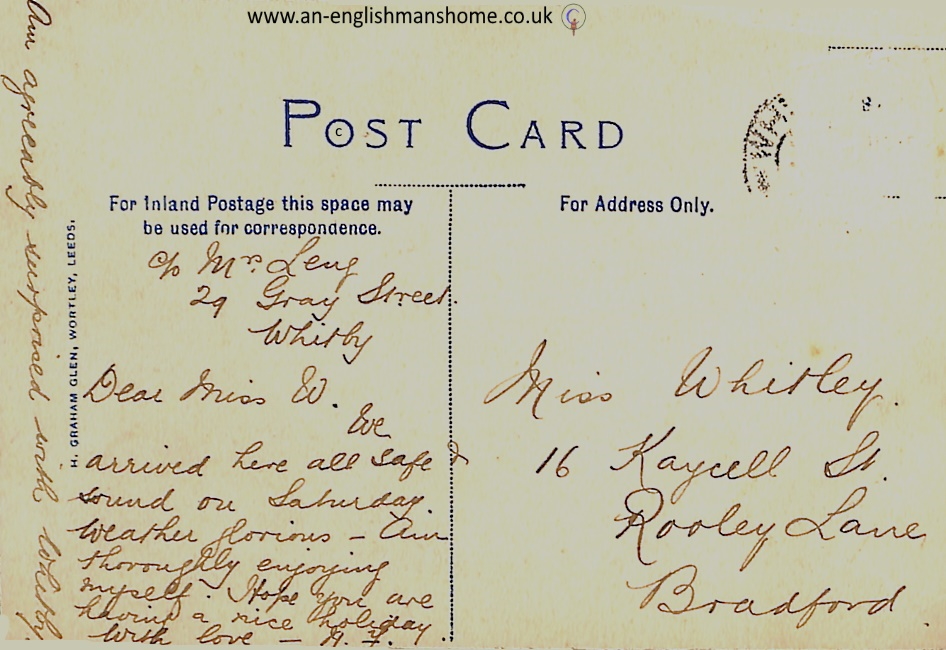 www.an-englishmanshome.co.uk
POST CARD
For Inland Postage this space may
be used for correspondence.
For Address Only.
H. GRAHAM GLEN, WORTLEY, LEEDS.
c/o Mrs. Leng
29 Gray Street.
Whitby
Dear Miss W.
We
arrived here all safe &
sound on Saturday.
Weather glorious - Am
thoroughly enjoying
myself. Hope you are
having a nice holiday.
With love -
Am agreeably surprised with Whitby.
Miss Whitley.
16 Kaycell St.
Rooley Lane
Bradford